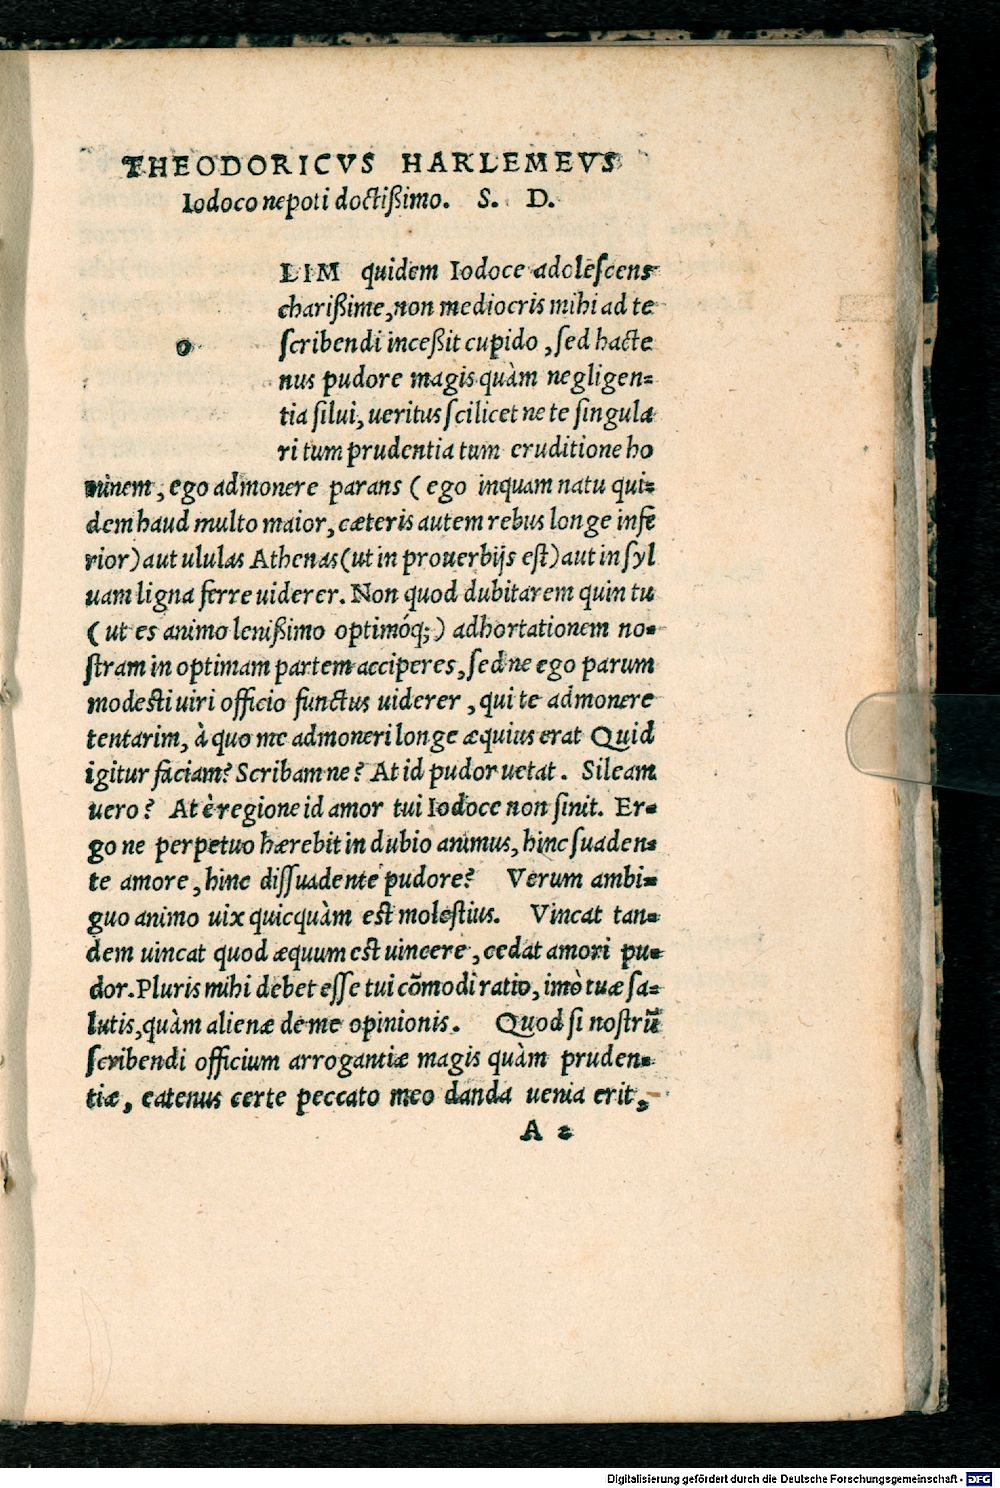 THEODORICVS HARLEMEVS
Iodoco nepoti doctißimo. S. D.
o LIM quidem Iodoce adolescens
charißime, non mediocris mihi ad te
scribendi inceßit cupido, sed hacte
nus pudore magis quàm negligen=
tia silui, ueritus scilicet ne te singula
ri tum prudentia tum eruditione ho
minem, ego admonere parans (ego inquam natu qui=
dem haud multo maior, cæteris autem rebus longe infe
rior) aut ululas Athenas (ut in prouerbijs est) aut in syl
uam ligna ferre uiderer. Non quod dubitarem quin tu
(ut es animo lenißimo optimóq;) adhortationem no=
stram in optimam partem acciperes, sed ne ego parum
modesti uiri officio functus uiderer, qui te admonere
tentarim, à quo me admoneri longe æquius erat Quid
igitur faciam? Scribam ne? At id pudor uetat. Sileam
uero? At è regione id amor tui Iodoce non sinit. Er=
go ne perpetuo hærebit in dubio animus, hinc suaden=
te amore, hinc dissuadente pudore? Verum ambi=
guo animo uix quicquàm est molestius. Vincat tan=
dem uincat quod æquum est uincere, cedat amori pu=
dor. Pluris mihi debet esse tui cõmodi ratio, imò tuæ sa=
lutis, quàm alienæ de me opinionis. Quod si nostrũ
scribendi officium arrogantiæ magis quàm pruden=
tiæ, eatenus certe peccato meo danda uenia erit,
A 2
Digitalisierung gefördert durch die Deutsche Forschungsgemeinschaft - DFG